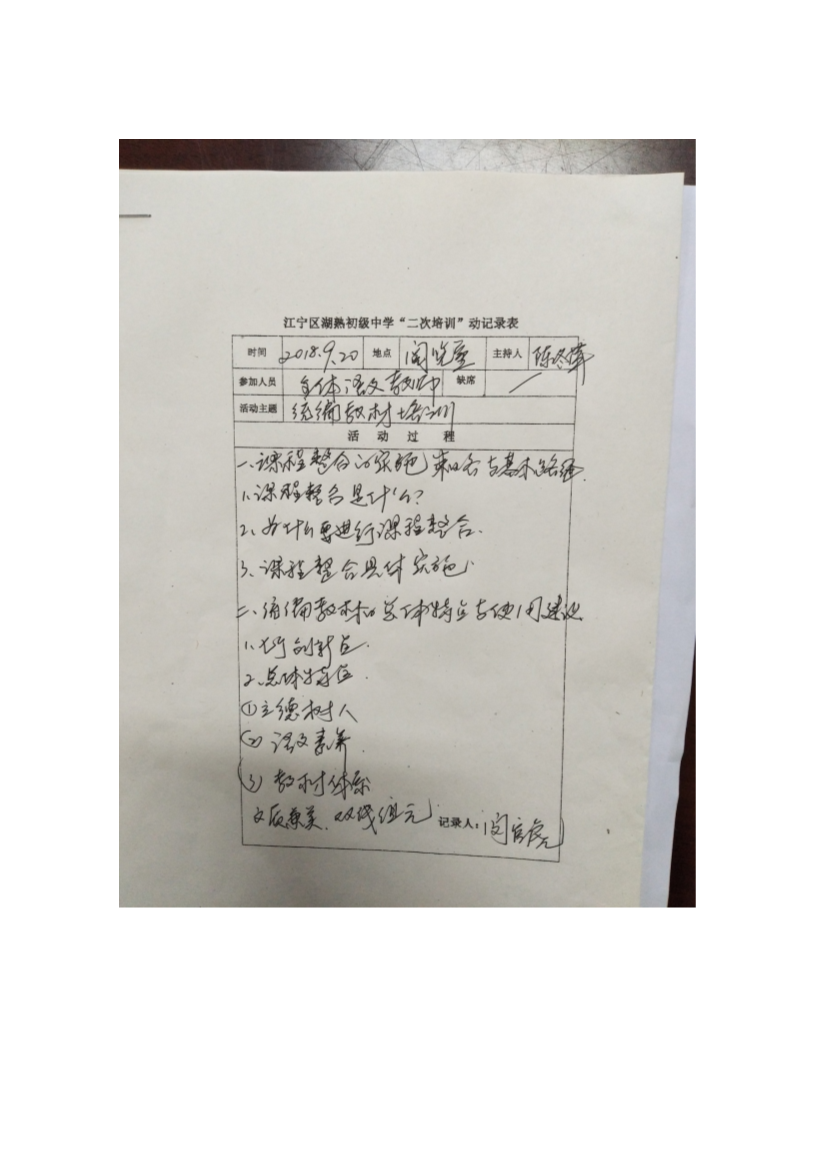 江宁区湖熟初级中学“二次培训”动记录表
时间 2018.9.20 地点 阅览室 主持人 陈
参加人员 全体语文教师 缺席 /
活动主题 统编教材培训
活动过程
一、课程整合的实施策略与基本路径.
1、课程整合是什么?
2、为什么要进行课程整合.
3、课程整合具体实施.
二、统编教材的总体特点与使用建议
1、七个创新点.
2、总体特点.
①立德树人
② 语文素养.
③ 教材体系
文质兼美、双线组元 记录人:闵